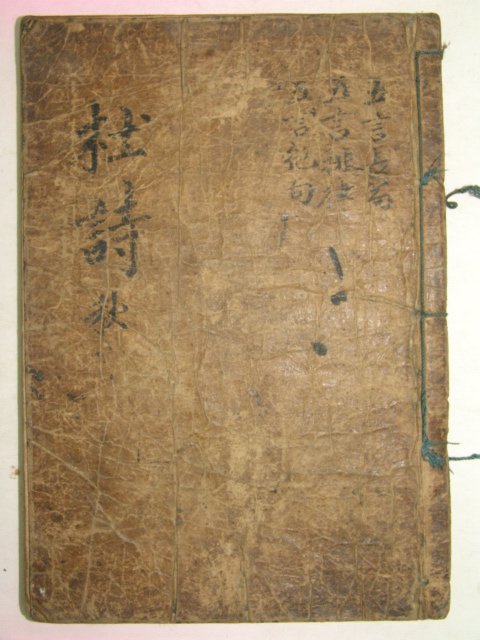 五言長篇
五言排律
五言絶句
杜詩